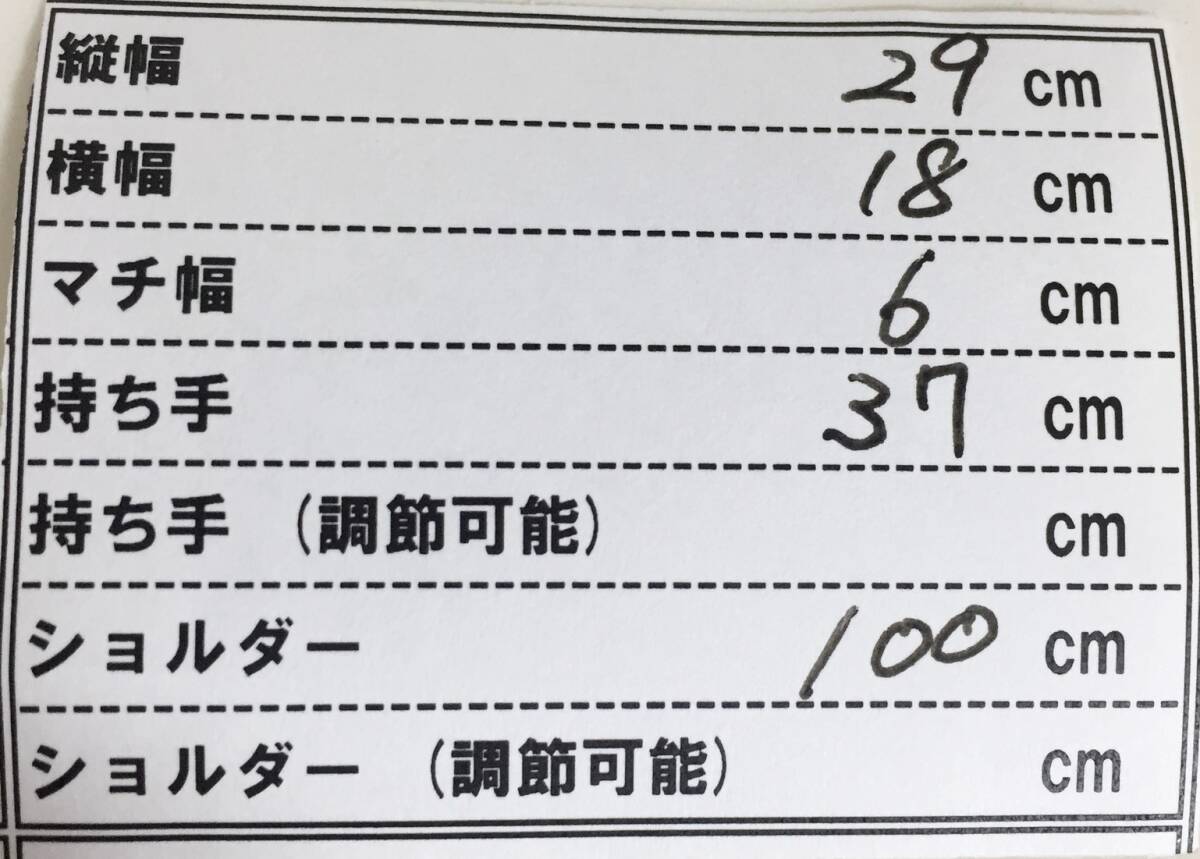 縦幅 29 cm
横幅 18 cm
マチ幅 6 cm
持ち手 37 cm
持ち手 (調節可能) cm
ショルダー 100 cm
ショルダー (調節可能) cm